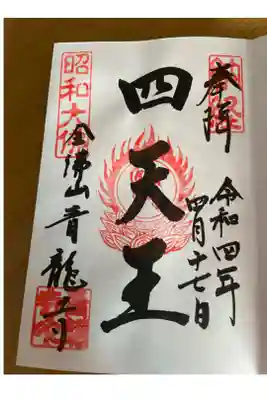 奉拝
令和四年
四月十七日
四天王
昭和大佛
全佛山青龍寺